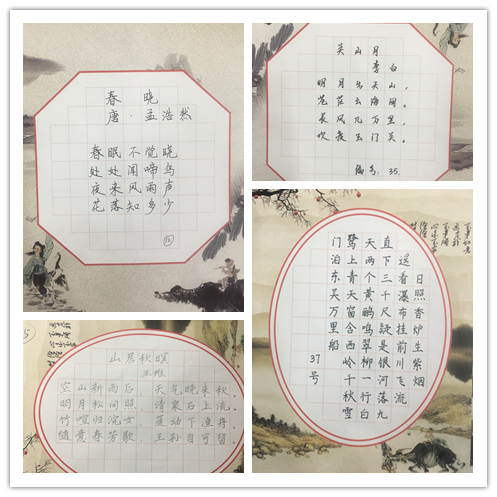 春 晓
唐·孟浩然
春眠不觉晓
处处闻啼鸟
夜来风雨声
花落知多少
关山月
李白
明月出天山，
苍茫云海间。
长风几万里，
吹度玉门关。
编号：35.
山居秋暝
王维
空山新雨后，天气晚来秋。
明月松间照，清泉石上流。
竹喧归浣女，莲动下渔舟
随意春芳歇，王孙自可留
日照香炉生紫烟
遥看瀑布挂前川飞流
直下三千尺疑是银河落九
天两个黄鹂鸣翠柳一行白
鹭上青天窗含西岭千秋雪
门泊东吴万里船
37号